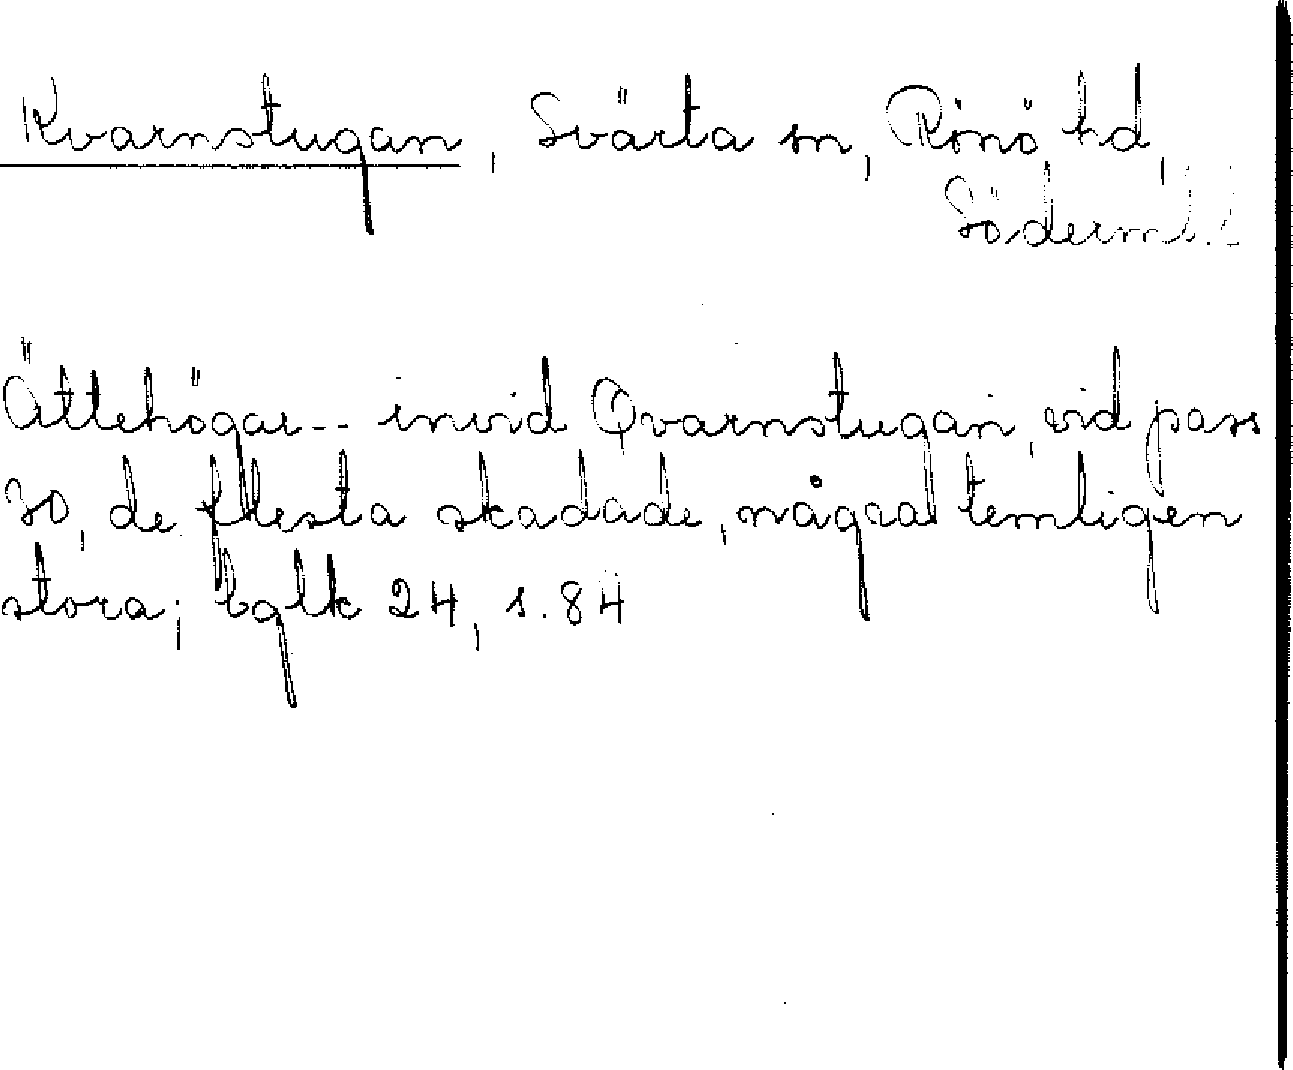 Kvarnstugan, Svärta sn, Rönö hd,
Söderml.l.
Ättehögar -- invid Qvarnstugan, vid pass
30, de flesta skadade, några temligen
stora; bglk 24, s. 84